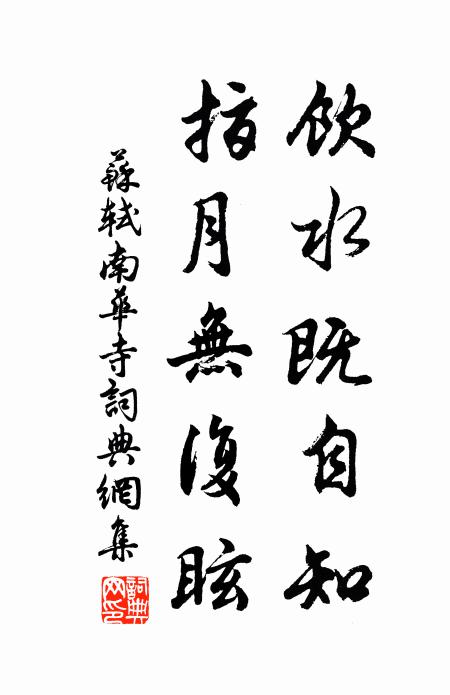 飲水既自知
指月無復眩
蘇軾南華寺詞典網集
詞典網印